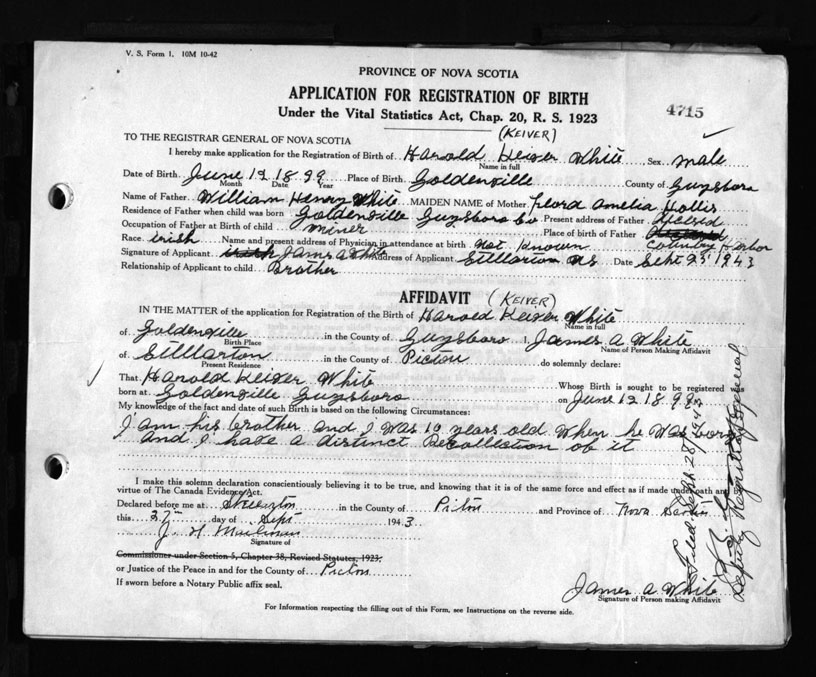 V. S. Form 1. 10M 10-42
PROVINCE OF NOVA SCOTIA
APPLICATION FOR REGISTRATION OF BIRTH
4715
Under the Vital Statistics Act, Chap. 20, R. S. 1923
(KEIVER)
TO THE REGISTRAR GENERAL OF NOVA SCOTIA
I hereby make application for the Registration of Birth of Harold Keiver White Sex male
Name in full
Date of Birth June 12 1899 Place of Birth Goldenville County of Guysboro
Month Date Year
Name of Father William Henry White MAIDEN NAME of Mother Flord Amelia Hollis
Residence of Father when child was born Goldenville Guysboro Co Present address of Father
Occupation of Father at Birth of child miner Place of birth of Father Country Harbor
Race irish Name and present address of Physician in attendance at birth Not Known
Signature of Applicant James A White Address of Applicant Stillarton NS Date Sept 1943
Relationship of Applicant to child Brother
AFFIDAVIT (KEIVER)
IN THE MATTER of the application for Registration of the Birth of Harold Keiver White
Name in full
of Goldenville in the County of Guysboro I, James A White
Birth Place Name of Person Making Affidavit
of Stillarton in the County of Picton do solemnly declare:
Present Residence
That Harold Keiver White Whose Birth is sought to be registered was
born at Goldenville Guysboro on June 12 189
My knowledge of the fact and date of such Birth is based on the following Circumstances:
I am his brother and I was 10 years old when he was born
and I have a distinct Recollection of it
I make this solemn declaration conscientiously believing it to be true, and knowing that it is of the same force and effect as if made under oath and
virtue of The Canada Evidence Act.
Declared before me at in the County of Picton and Province of Nova Scotia
this 27 day of Sept 1943
J. H.
Signature of
Commissioner under Section 5, Chapter 38, Revised Statutes, 1923.
or Justice of the Peace in and for the County of Picton
If sworn before a Notary Public affix seal.
James A White
Signature of Person making Affidavit
For Information respecting the filling out of this Form, see Instructions on the reverse side.
Filed Sept. 28/1943
Deputy Registrar General